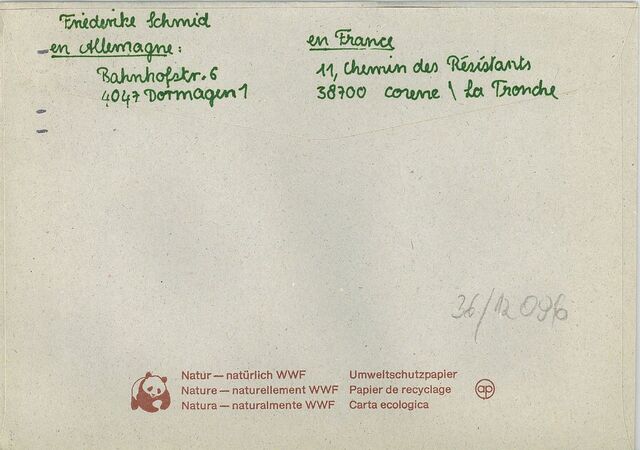 Friederike Schmid
en Allemagne:
Bahnhofstr. 6
4047 Dormagen 1
en France
11, Chemin des Résistants
38700 Corenc \ La Tronche
36/12 096
Natur — natürlich WWF
Nature — naturellement WWF
Natura — naturalmente WWF
Umweltschutzpapier
Papier de recyclage
Carta ecologica